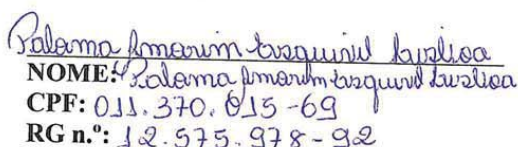 Paloma Amorim Esquivel Lustosa
NOME: Paloma Amorim Esquivel Lustosa
CPF: 011.370.015-69
RG n.º: 12.575.978-92